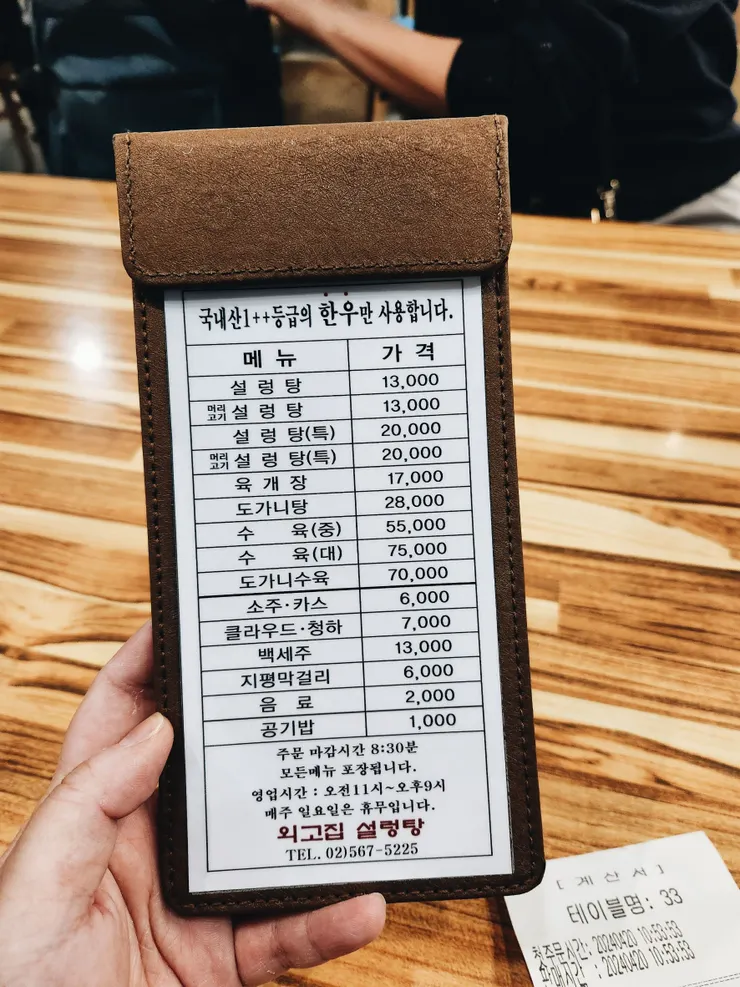 국내산1++등급의 한우만 사용합니다.
메 뉴 가 격
설 렁 탕 13,000
머리고기 설 렁 탕 13,000
설 렁 탕(특) 20,000
머리고기 설 렁 탕(특) 20,000
육 개 장 17,000
도가니탕 28,000
수 육(중) 55,000
수 육(대) 75,000
도가니수육 70,000
소주·카스 6,000
클라우드·청하 7,000
백세주 13,000
지평막걸리 6,000
음 료 2,000
공기밥 1,000
주문 마감시간 8:30분
모든메뉴 포장됩니다.
영업시간 : 오전11시~오후9시
매주 일요일은 휴무입니다.
외고집 설렁탕
TEL. 02)567-5225
[ 계 산 서 ]
테이블명: 33
첫주문시간: 20240420 10:53:53
판매시간 : 20240420 10:53:53